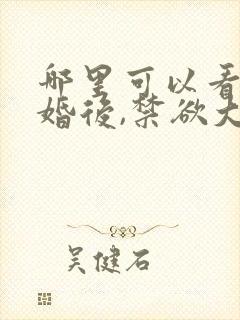 哪里可以看
婚後,禁欲大
吴健石